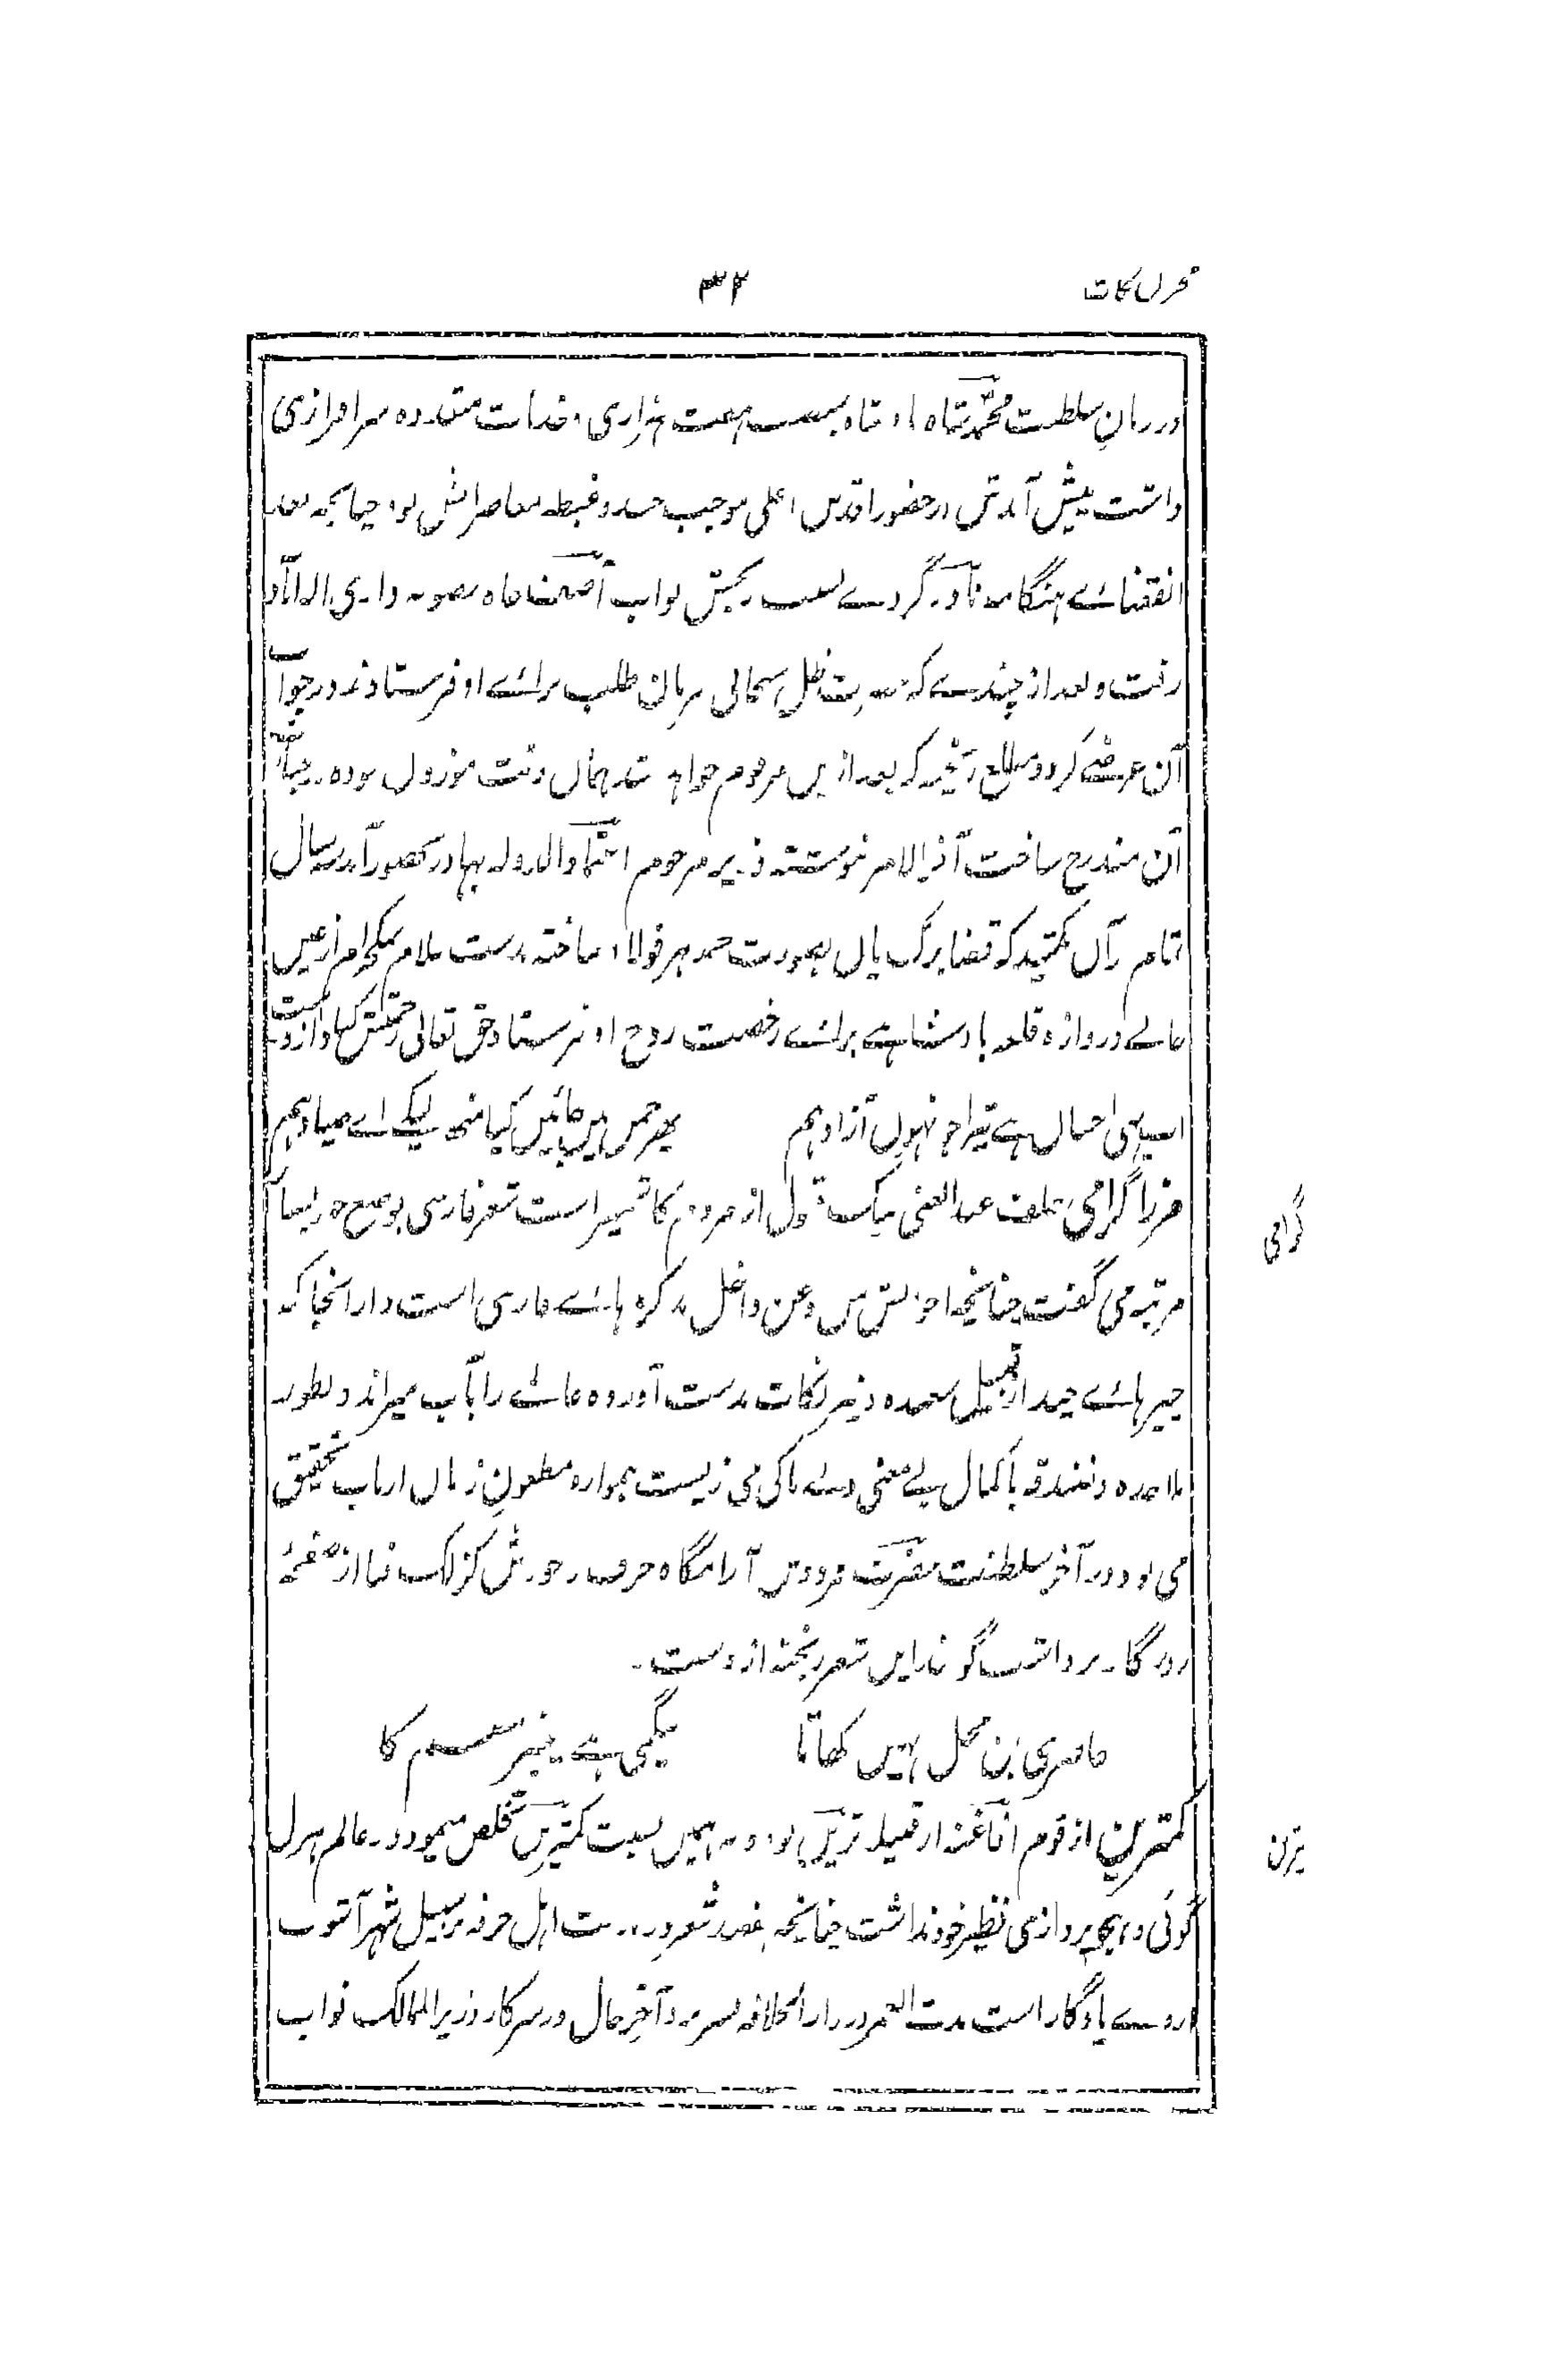 مخزن نکات
۳۲
در زمان سلطنت محمد شاہ بادشاہ بمنصب ہفت ہزاری و خدمات متعددہ سرافرازی
داشت پیش آمدش در حضور اقدس اعلی موجب حسد و غبطہ معاصرانش بود چنانچہ بعد
انقضائے ہنگامہ نادر گردے بسبب رنجش نواب آصف جاہ بصوبہ داری الہ آباد
رفت و بعد از چندے کہ حضرت ظل سبحانی فرمان طلب برائے او فرستادند در جواب
آن عرضے کرد و مطلع ریختہ کہ بعد ازیں مرقوم خواہد شد ہماں وقت موزوں نمودہ در
آن مندرج ساخت آخرالامر نوشتہ وزیر مرحوم اعتماد الدولہ بہادر بحضور آمد سال
تمام بر آں نکشید کہ قضا برگ پان بصورت جمدہر فولاد ساختہ بدست ملازم
دروازہ قلعہ بادشاہے برائے رخصت روح او فرستاد حق تعالی رحمتش کناد ازوست
ایسا ہی احسان ہے تیرا جو نہوں آزاد ہم
پھر چمن میں جائیں کیا منھ لیکے اے صیاد ہم
مرزا گرامی خلف عبدالغنی بیگ قبول از مردم کاشمیر است شعر فارسی بوضع
مرتبہ می گفت چنانچہ احوالش من و عن داخل تذکرہ ہائے فارسی است و از انجا کہ
چیزہائے چند از قبیل شعبدہ و نیرنجات بدست آوردہ عالمے را باب میراند و بطور
ملاحدہ و زندقہ با کمال بے معنی و بے باکی می زیست ہموارہ مطعون زبان ارباب تحقیق
می بود در آخر سلطنت حضرت فردوس آرامگاہ حرف وجودش کزلک فنا از صفحہ
روزگار برداشت گویند ایں شعر ریختہ از وست۔
حاضری بن محل نہیں کھاتا
بیگمی ہے پنیر کا
کمترین از قوم افاغنہ از قبیلہ ترین بود و بہ ہمیں نسبت کمترین تخلص مینمود در عالم ہزل
گوئی و ہجو پردازی نظیر خود نداشت چنانچہ شعر در مذمت اہل حرفہ بر سبیل شہر آشوب
از وے یادگار است مدت العمر در دارالخلافہ بسر بردہ آخر حال در سرکار وزیر الممالک نواب
گرامی